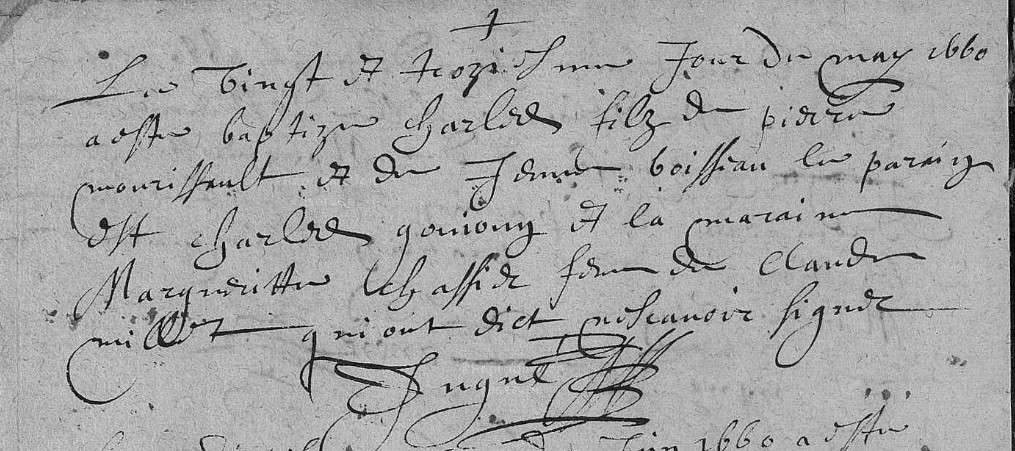 Le Vingt et troziesme Jour de may 1660
a este baptize charles filz de pierre
mourissault et de Jenne boisseau le parain
est charles goujong et la maraine
Margueritte Chassier feme de Claude
millet qui ont dict ne scavoir signer
Juin 1660 a este